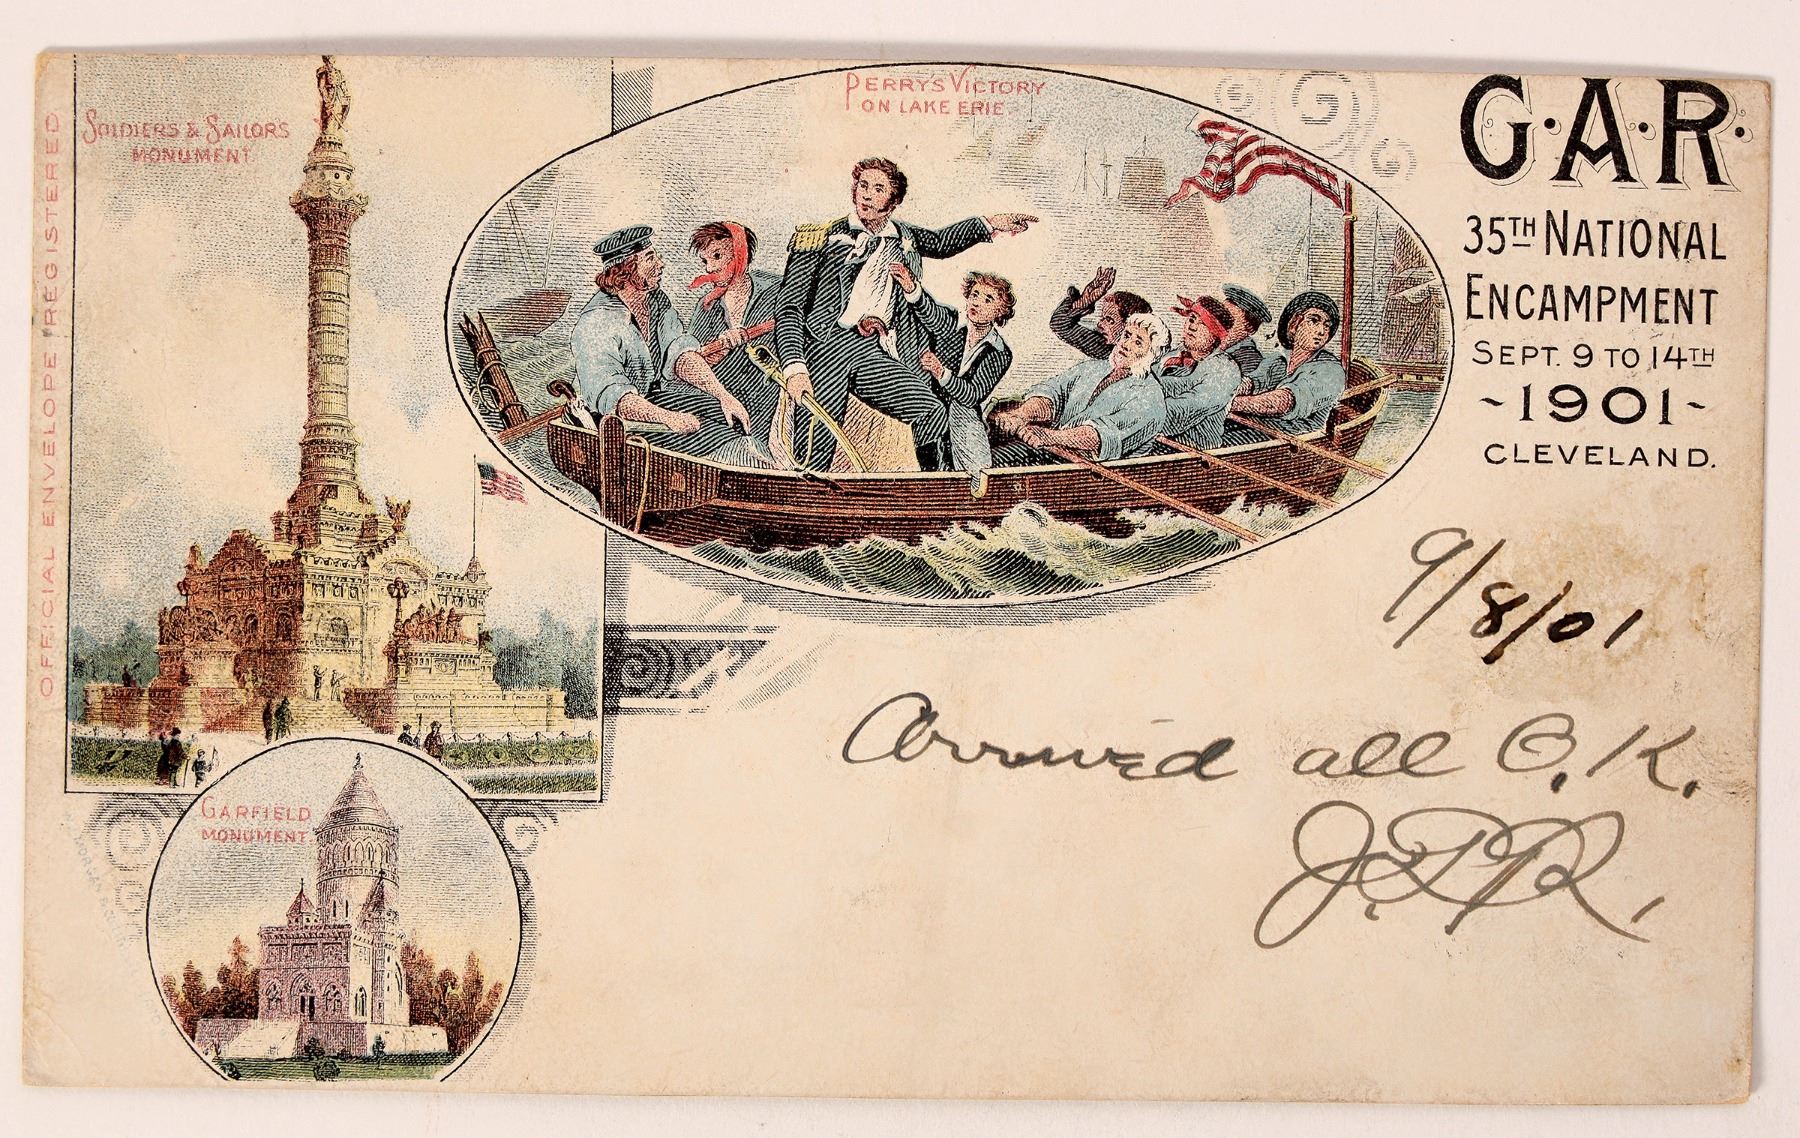 OFFICIAL ENVELOPE REGISTERED
SOLDIERS & SAILORS
MONUMENT
PERRY'S VICTORY
ON LAKE ERIE.
G·A·R·
35TH NATIONAL
ENCAMPMENT
SEPT. 9 TO 14TH
~1901~
CLEVELAND.
9/8/01
Arrived all O.K.
J.P.R.
GARFIELD
MONUMENT.